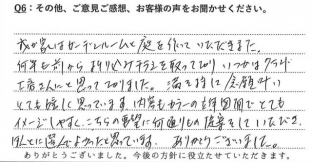 Q6：その他、ご意見ご感想、お客様の声をお聞かせください。
我が家はガーデンルームと庭を作っていただきました。
何年も前から チラシを取っており いつかはクラフト
工房さんにと思っておりました。満を持して 念願叶い
とても嬉しく思っています。内容もカラーの 図面で とても
イメージしやすく、こちらの要望に何通りもの 提案をして いただき、
ほんとに選んでよかったと思っています。ありがとうございました。
ありがとうございました。今後の方針に役立たせていただきます。